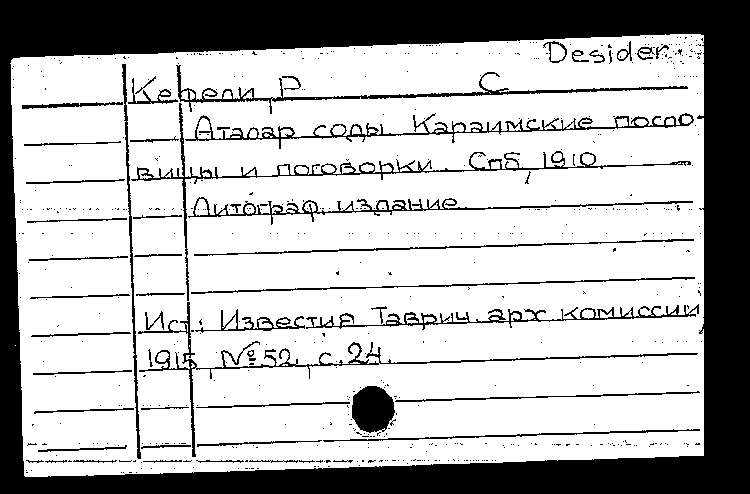 Desider.
Кефели, Р С
Аталар соды Караимские посло-
вицы и поговорки. Спб, 1910
Литограф. издание.
Ист.: Известия Таврич. арх комиссии
1915, № 52, с. 24.